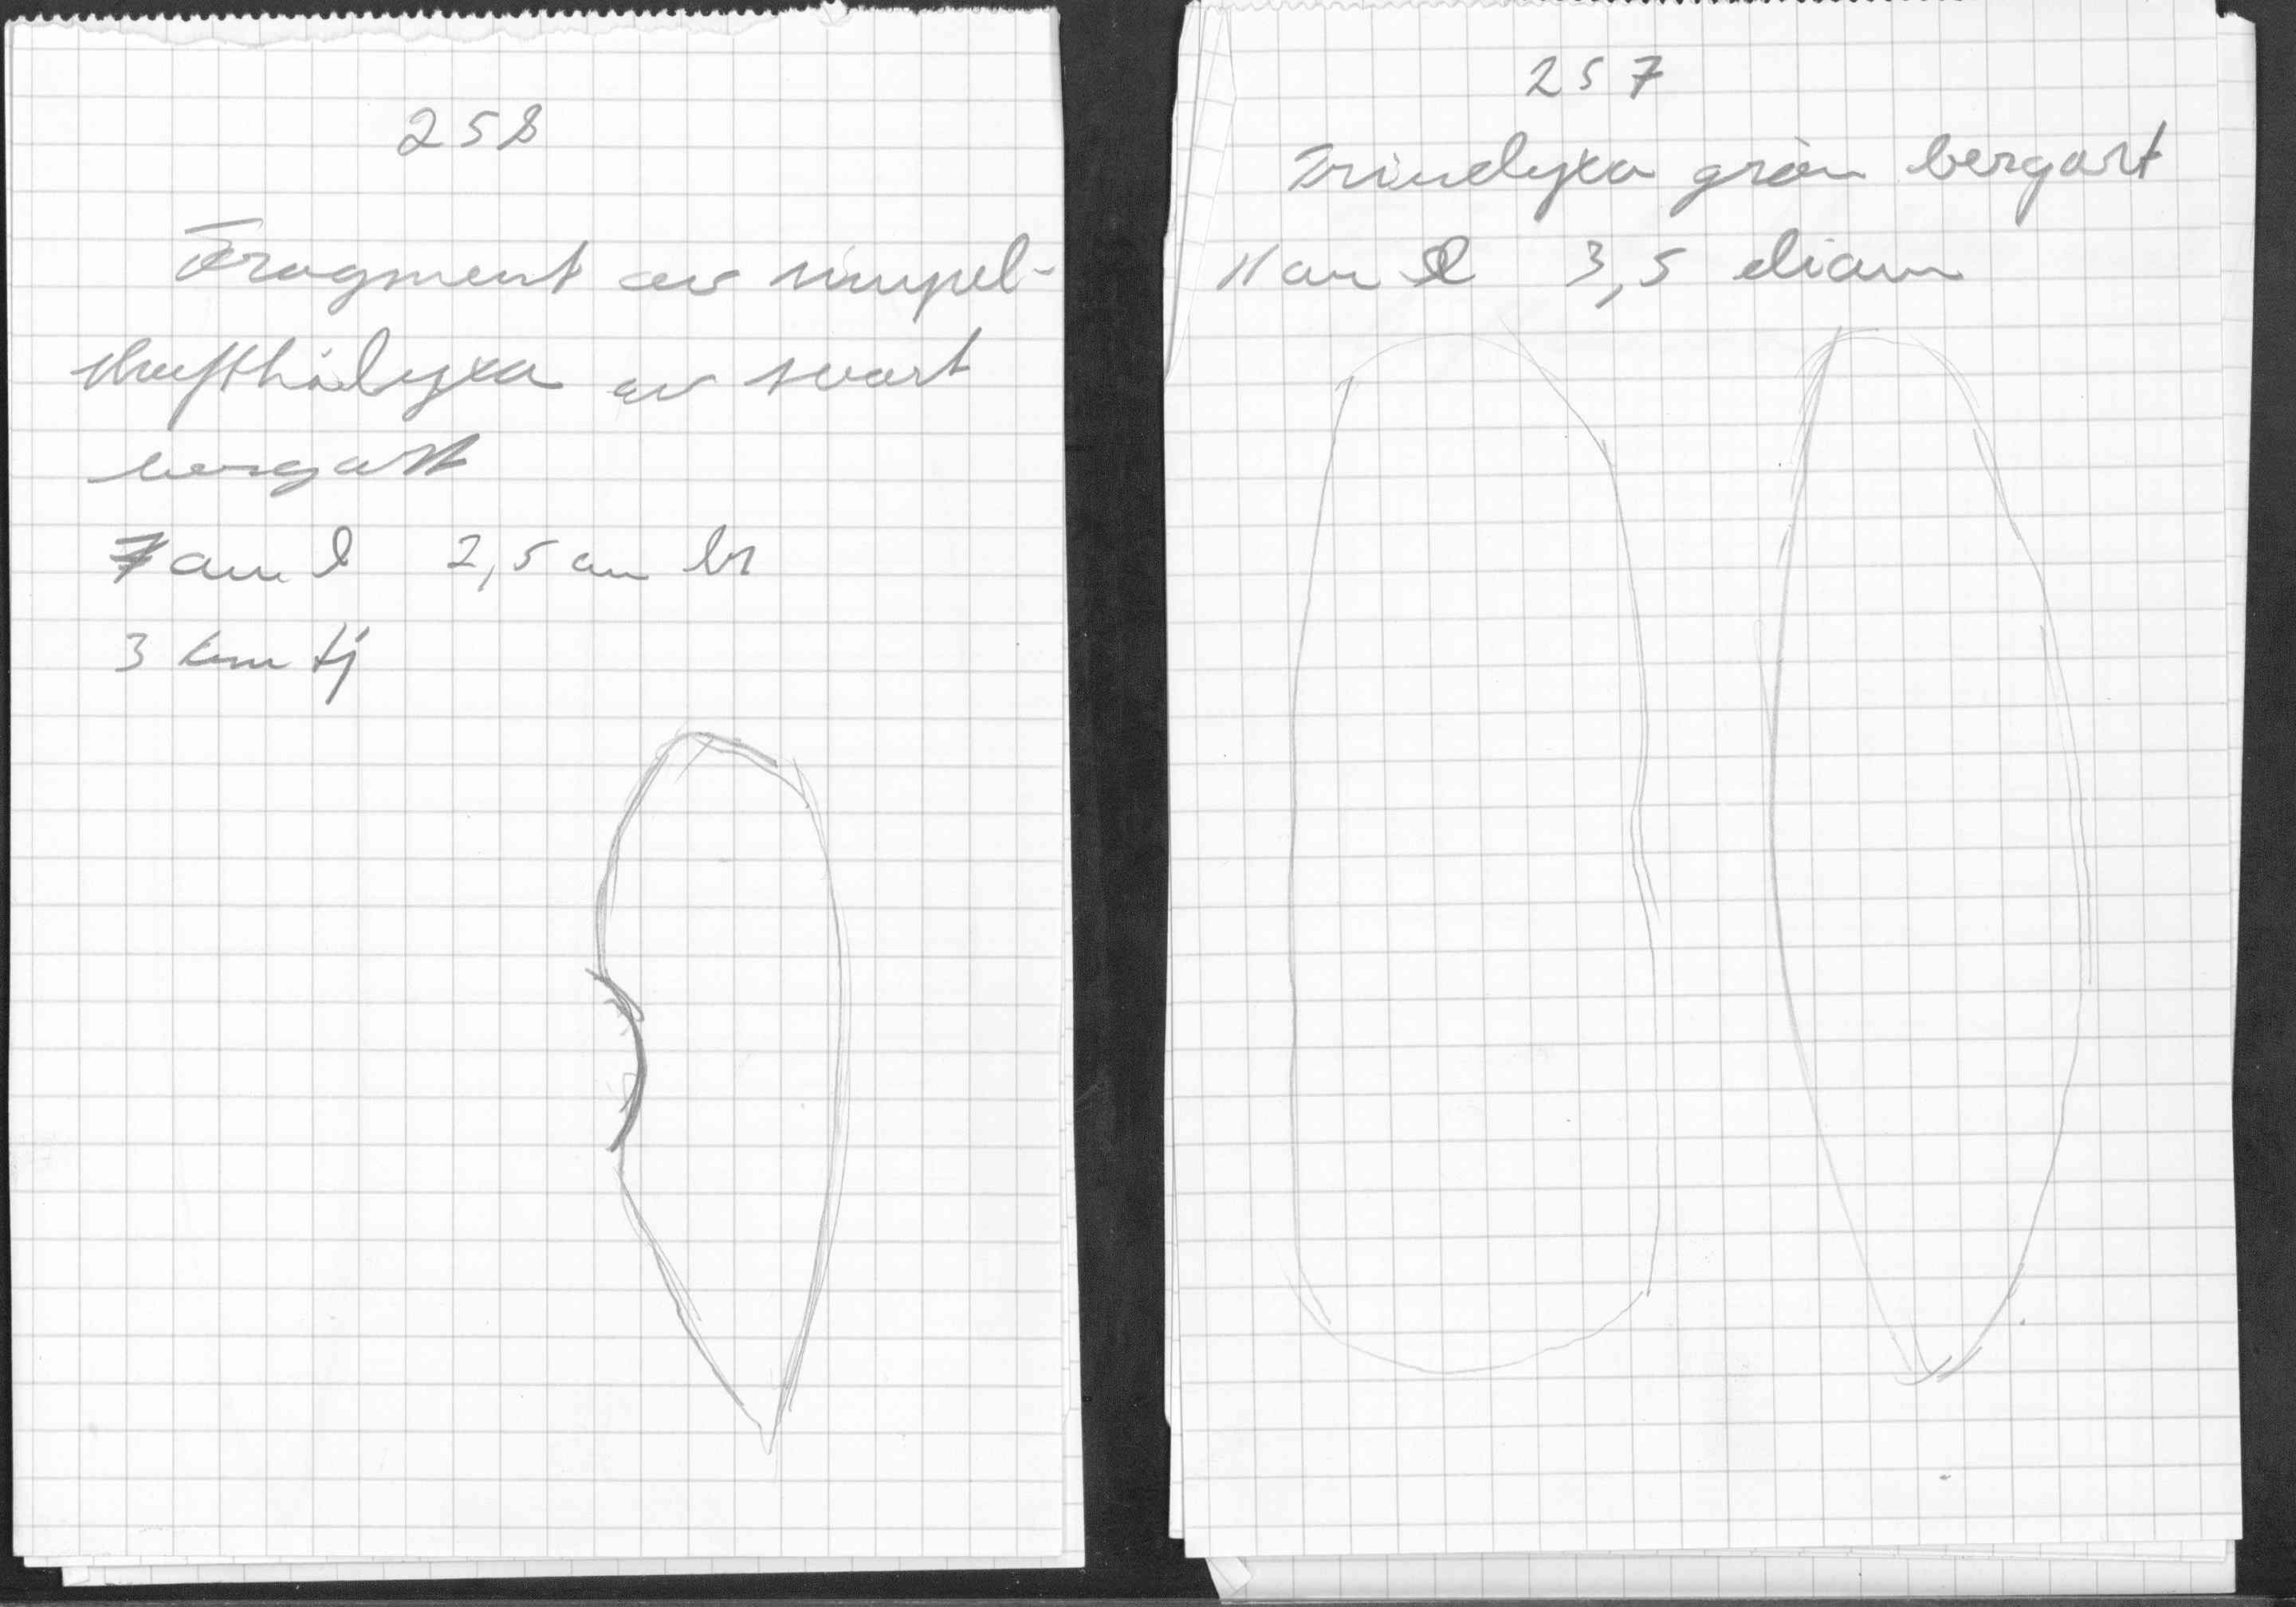 258
Fragment av simpel-
skafthålyxa av svart
bergart
7 cm l 2,5 cm br
3 cm tj
257
Trindyxa grön bergart
11 cm l 3,5 diam